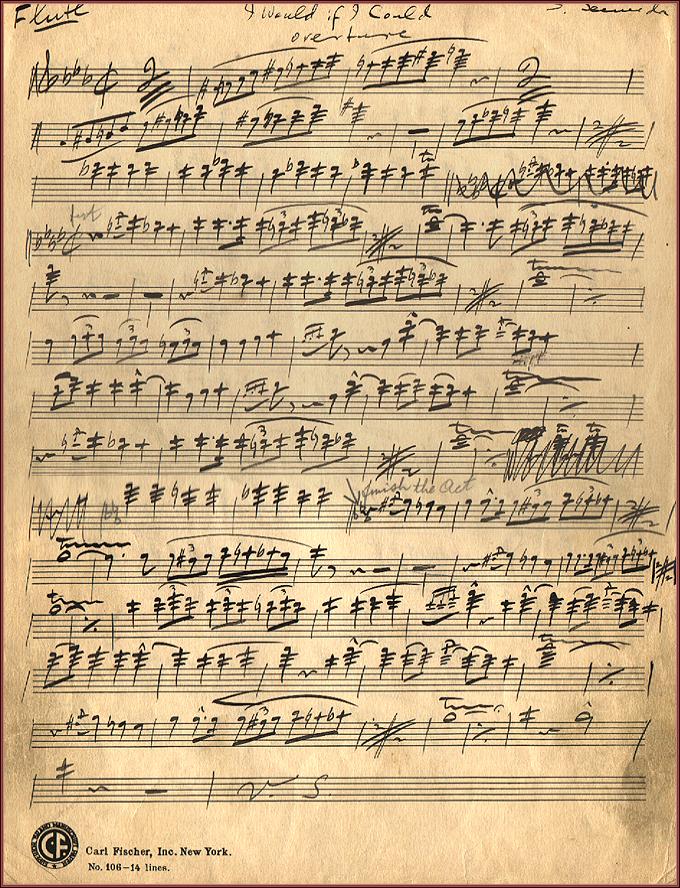 Flute
I Would if I Could
overture
finish the Act
V. S.
CF
Carl Fischer, Inc. New York.
No. 106–14 lines.